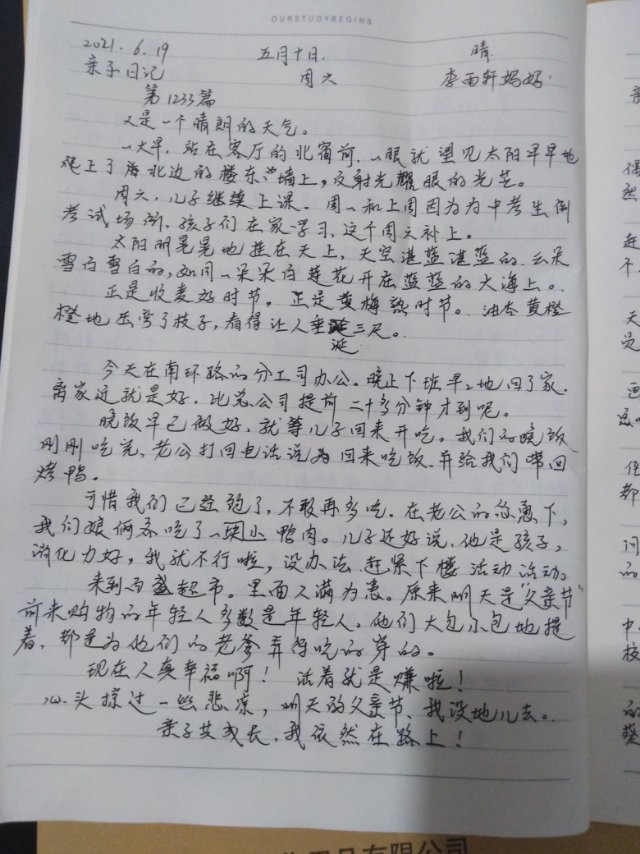 OURSTUDYBEGINS
2021.6.19 五月十日. 晴
亲子日记 周六 李雨轩妈妈.
第1233篇
又是一个晴朗的天气。
一大早，站在客厅的北窗前，一眼就望见太阳早早地
爬上了 北边的楼东 墙上，反射光耀眼的光芒。
周六，儿子继续上课。周一和上周因为为中考生倒
考试场所，孩子们在家学习，这个周六补上。
太阳明晃晃地挂在天上，天空湛蓝湛蓝的，云朵
雪白雪白的，如同一朵朵白莲花开在蓝蓝的大海上。
正是收麦好时节。正是黄梅熟时节。油杏黄橙
橙地压弯了枝子，看得让人垂涎三尺。
涎
今天在南环路的分公司办公。晚上下班早早地回了家，
离家近就是好，比总公司提前二十多分钟才到呢。
晚饭早已做好，就等儿子回来开吃。我们的晚饭
刚刚吃完，老公打回电话说为回来吃饭，并给我们带回
烤鸭。
可惜我们已经饱了，不敢再多吃。在老公的怂恿下，
我们娘俩各吃了一块小鸭肉。儿子还好说，他是孩子，
消化力好，我就不行啦，没办法，赶紧下楼活动活动。
来到 盛超市。里面人满为患。原来明天是“父亲节”
前来购物的年轻人多数是年轻人，他们大包小包地提
着，都是为他们的老爹弄得吃的穿的。
现在人真幸福啊！活着就是赚啦！
心头掠过一丝悲凉，明天的父亲节，我没地儿去。
亲子共成长，我依然在路上！
有限公司